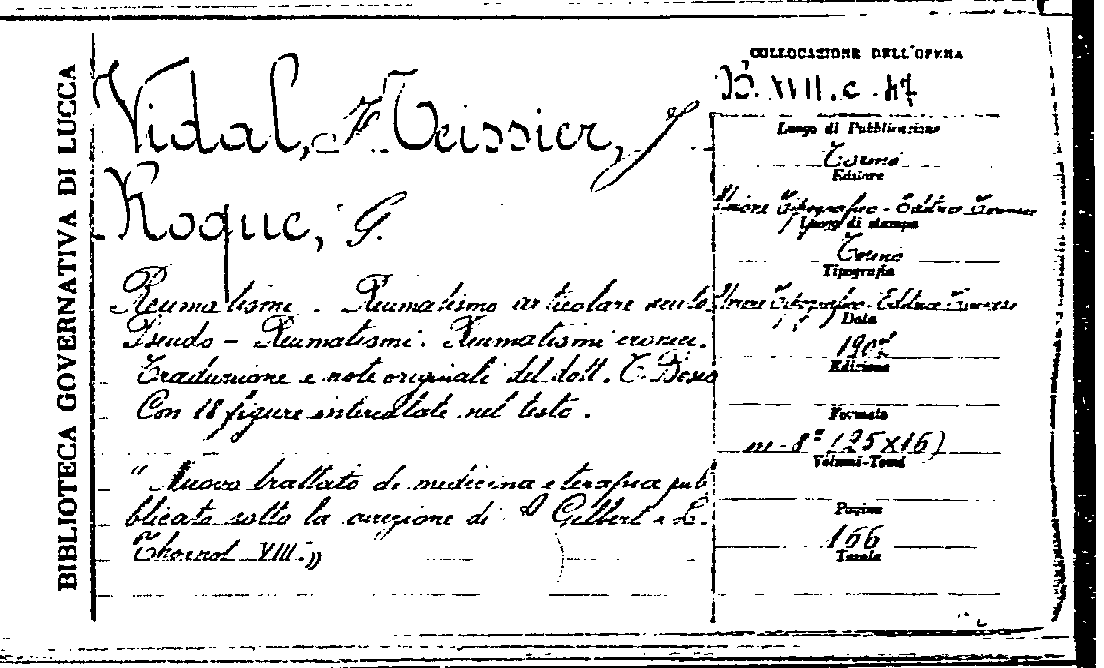 BIBLIOTECA GOVERNATIVA DI LUCCA
Vidal, F. Teissier, J.
Roque, G.
Reumatismi. Reumatismo articolare acuto
Pseudo - Reumatismi. Reumatismi cronici.
Traduzione e note originali del dott. C.
Con 18 figure intercalate nel testo.
"Nuovo trattato di medicina e terapia pub
blicato sotto la direzione di A Gilbert e L.
Thoinot VIII."
COLLOCAZIONE DELL'OPERA
B. XVII. c. 47
Luogo di Pubblicazione
Torino
Editore
Unione Tipografico - Editrice Torinese
Luogo di stampa
Torino
Tipografia
Unione Tipografico - Editrice Torinese
Data
Edizione
Formato
in-8º (25x16)
Volumi-Tomi
Pagine
166
Tavole